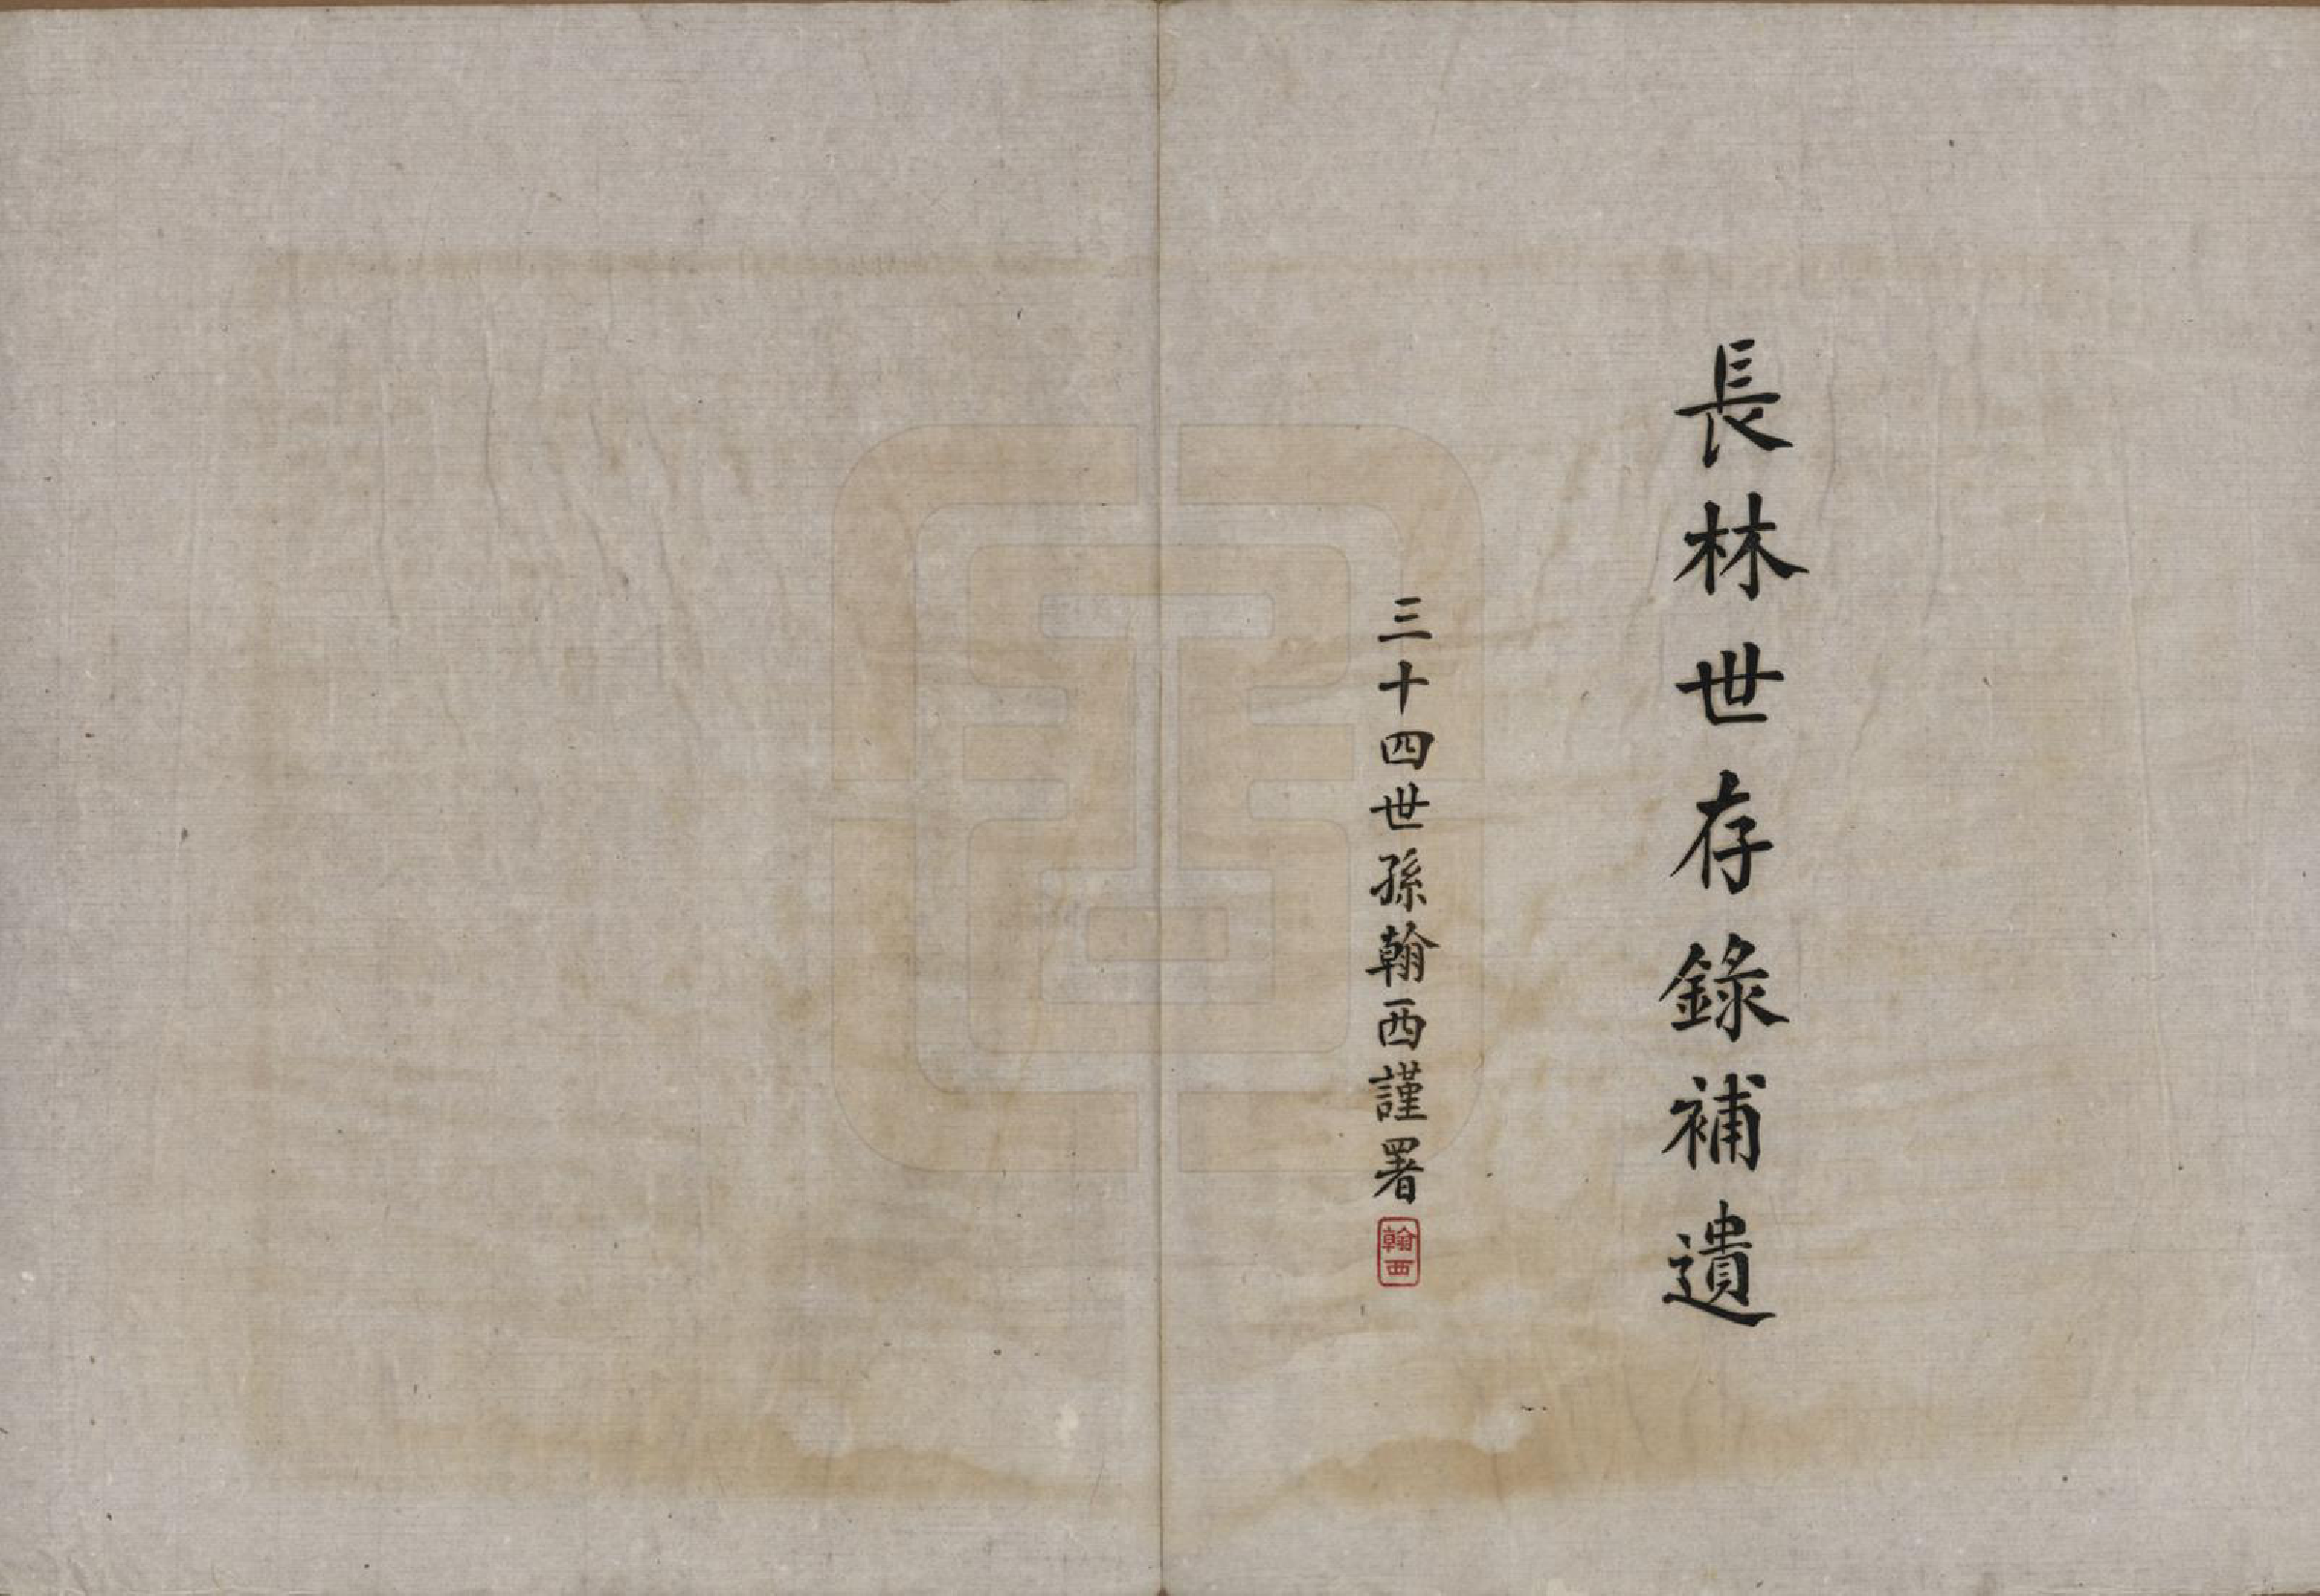 長林世存錄補遺
三十四世孫翰西謹署
翰西